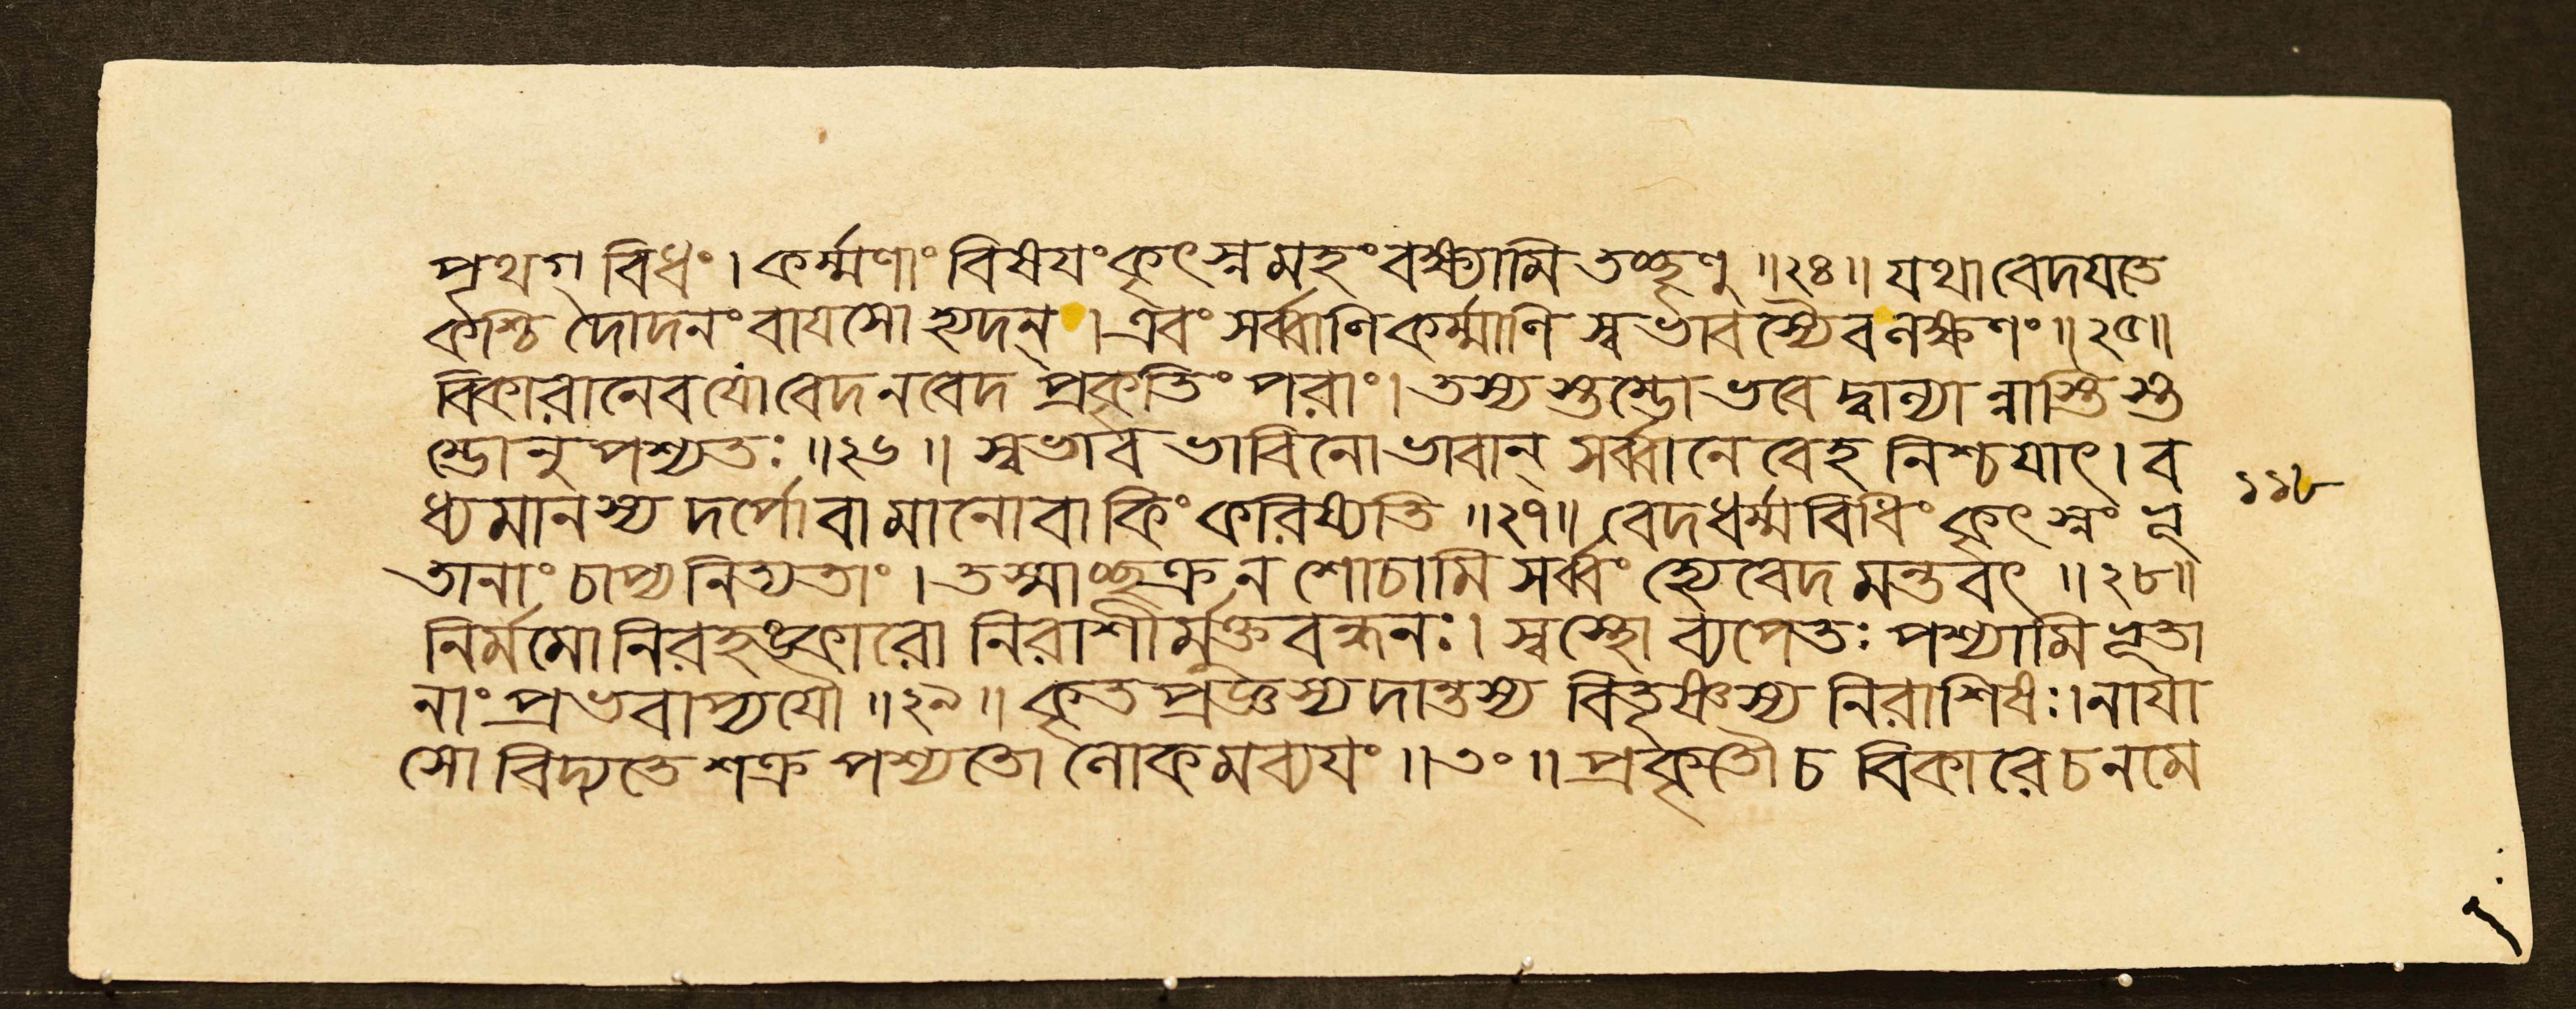 পৃথগ্ বিধং। কর্ম্মণাং বিষয়ং কৃৎস্নমহং বক্ষ্যামি তচ্ছৃণু ॥২৪॥ যথা বেদয়তে
কশ্চিদোদনং বায়সো হ্যদন্ । এবং সর্ব্বাণি কর্ম্মাণি স্বভাবস্যৈব লক্ষণং ॥২৫॥
বিকারানেব যো বেদ ন বেদ প্রকৃতিং পরাং। তস্য স্তম্ভো ভবেদ্বাল্যান্নাস্তি স্ত
ম্ভোনুপশ্যতঃ ॥২৬॥ স্বভাবভাবিনো ভাবান্ সর্ব্বানেবেহ নিশ্চয়াৎ। ব
ধ্যমানস্য দর্পো বা মানো বা কিং করিষ্যতি ॥২৭॥ বেদ ধর্ম্মবিধিং কৃৎস্নং ভূ
তানাং চাপ্যনিত্যতাং । তস্মাচ্ছক্র ন শোচামি সর্ব্বং হ্যেবেদমন্তবৎ ॥২৮॥
১১৮
নির্মমো নিরহঙ্কারো নিরাশীর্মুক্তবন্ধনঃ। স্বস্থো ব্যপেতঃ পশ্যামি ভূতা
নাং প্রভবাপ্যয়ৌ ॥২৯॥ কৃতপ্রজ্ঞস্য দান্তস্য বিতৃষ্ণস্য নিরাশিষঃ। নায়া
সো বিদ্যতে শক্র পশ্যতো লোকমব্যয়ং ॥৩০॥ প্রকৃতৌ চ বিকারে চ ন মে